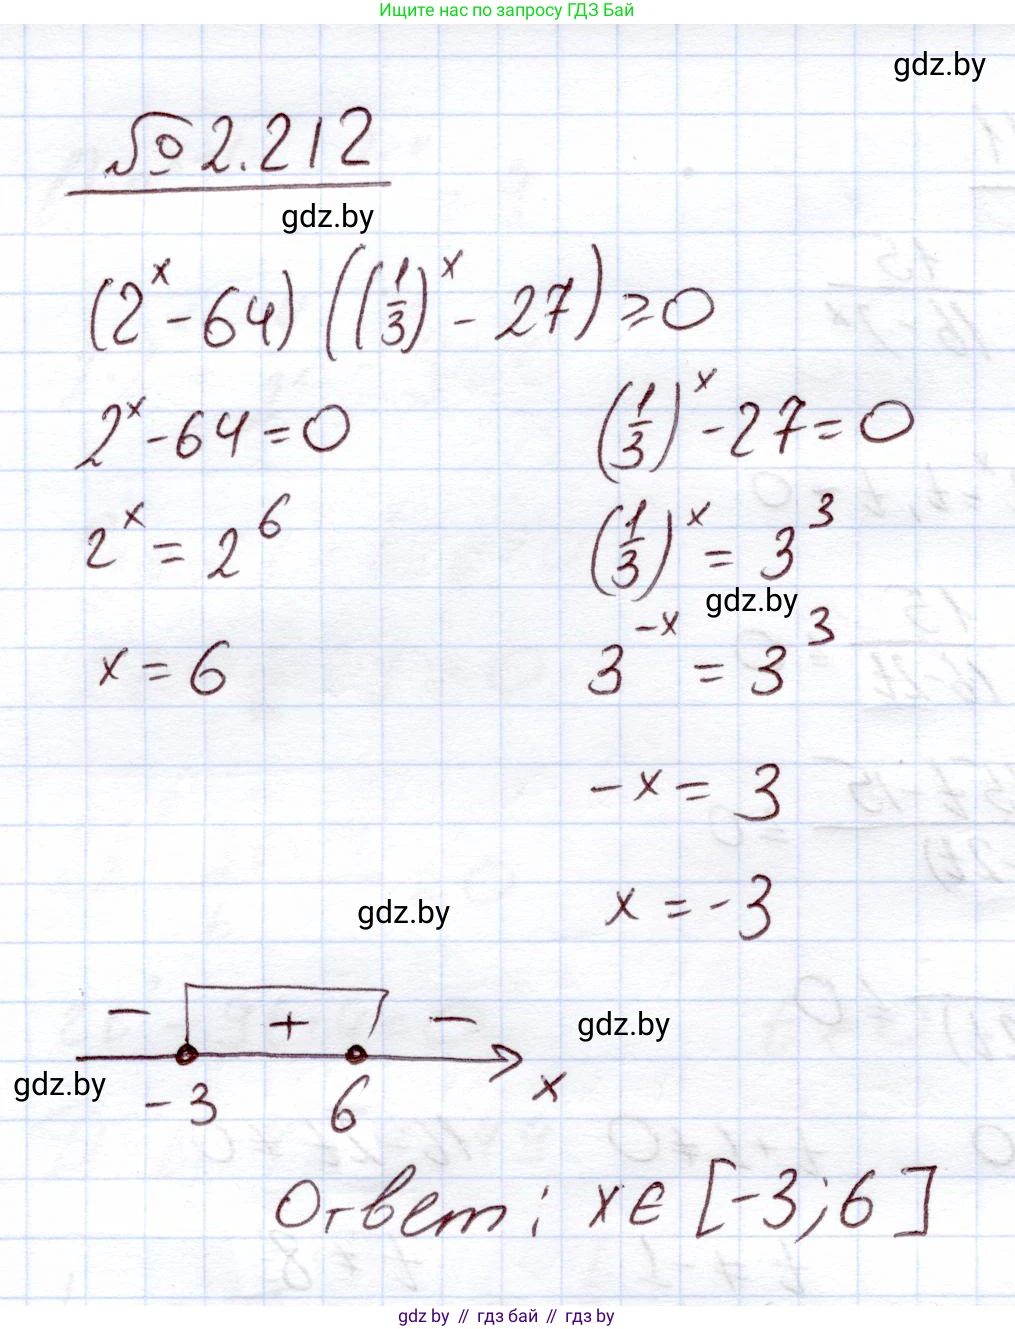 Ищите нас по запросу ГДЗ Бай
gdz.by
№ 2.212
gdz.by
(2^x - 64) ((1/3)^x - 27) ≥ 0
2^x - 64 = 0
(1/3)^x - 27 = 0
2^x = 2^6
(1/3)^x = 3^3
gdz.by
x = 6
3^-x = 3^3
-x = 3
x = -3
gdz.by
- + -
gdz.by
gdz.by
-3 6 x
Ответ: x ∈ [-3; 6]
gdz.by // гдз бай // gdz.by